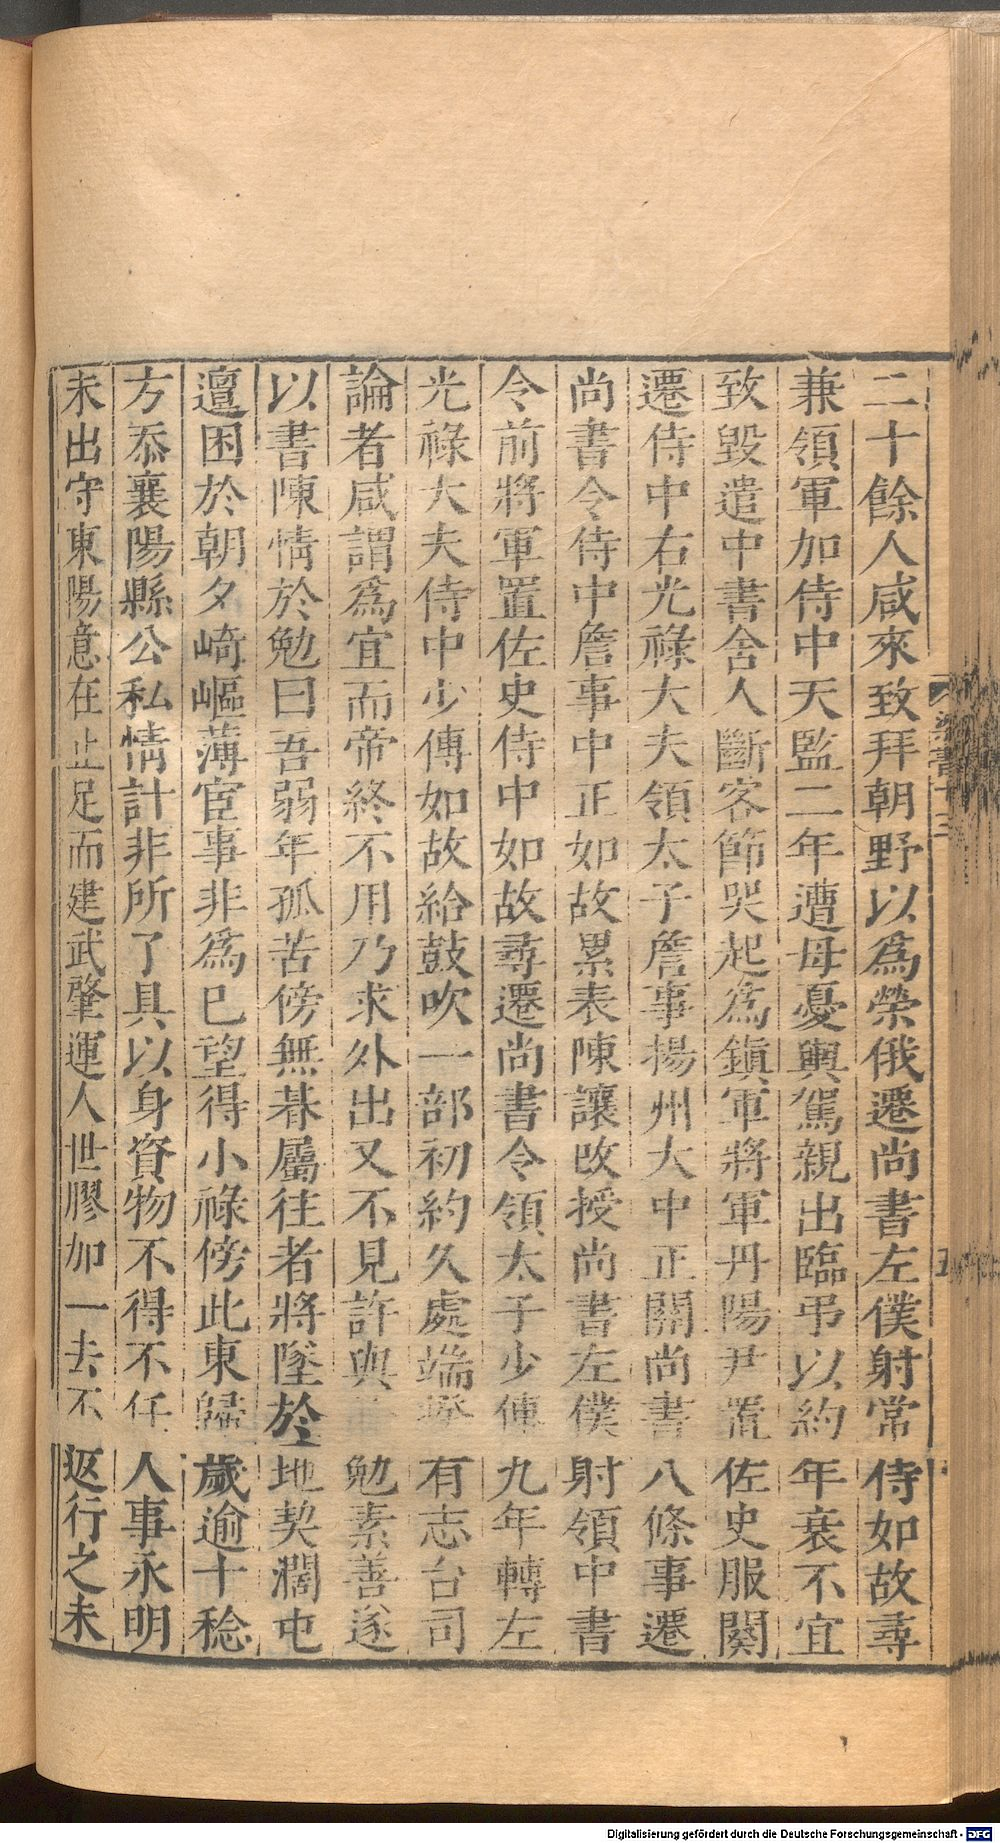 二十餘人咸來致拜朝野以為榮俄遷尚書左僕射常侍如故尋
兼領軍加侍中天監二年遭母憂輿駕親出臨弔以約年衰不宜
致毀遣中書舍人斷客節哭起為鎮軍將軍丹陽尹置佐史服闋
遷侍中右光祿大夫領太子詹事揚州大中正關尚書八條事遷
尚書令侍中詹事中正如故累表陳讓改授尚書左僕射領中書
令前將軍置佐史侍中如故尋遷尚書令領太子少傅九年轉左
光祿大夫侍中少傅如故給鼓吹一部初約久處端揆有志台司
論者咸謂為宜而帝終不用乃求外出又不見許與勉素善遂
以書陳情於勉曰吾弱年孤苦傍無朞屬往者將墜於地契濶屯
邅困於朝夕崎嶇薄宦事非為己望得小祿傍此東歸歲逾十稔
方忝襄陽縣公私情計非所了具以身資物不得不任人事永明
末出守東陽意在止足而建武肇運人世膠加一去不返行之未
梁書十三
五
Digitalisierung gefördert durch die Deutsche Forschungsgemeinschaft - DFG